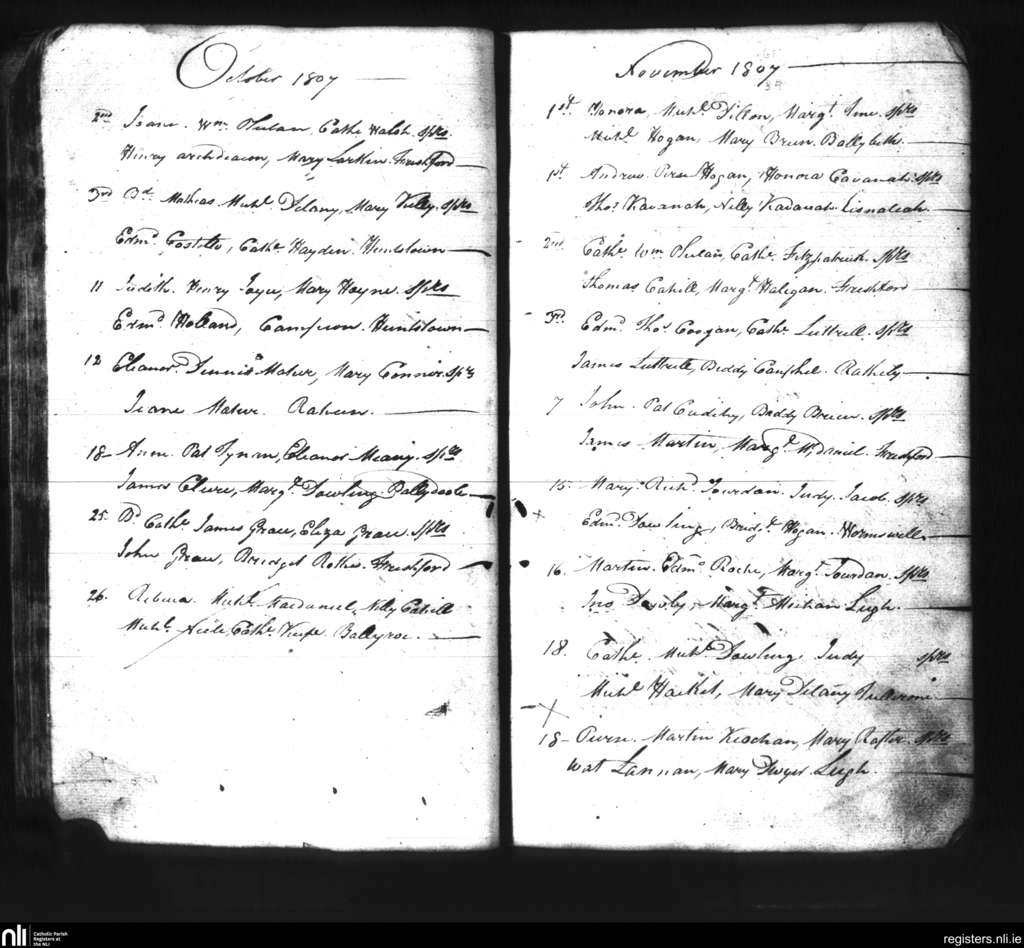 October 1807
2nd Jeane. Wm Phelan, Cathe Walsh. Sprs
Henry archdeacon, Mary Larkin. Freshford
3rd Bd Mathias Michl Delany, Mary Kelly. Sprs
Edmd Costello, Cathe Hayden. Huntstown
11 Judith. Henry Joyce, Mary Hayne. Sprs
Edmd Holland, Campion. Huntstown
12 Eleanor. Dennis Maher, Mary Connor. Sprs
Jeane Maher. Raheen.
18 Anne. Pat Tynan, Eleanor Meany. Sprs
James Cleere, Margt Dowling Ballydoole
25. Bd Cathe James Grace, Eliza Grace. Sprs
John Grace, Bridget Rothe. Freshford
26. Rebecca. Michl Macdaniel, Nelly Cahill
Michl Cathe Ballyroe.
November 1807
1st Honora, Michl Dillon, Margt Sprs
Michl Hogan, Mary Brien. Ballybeths
1st Andrew. Pierse Hogan, Honora Cavanah. Sprs
Thos Kavanah, Nelly Kavanah Lisnaleah.
2nd Cathe. Wm Phelan, Cathe Fitzpatrick. Sprs
Thomas Cahill, Margt Halegan. Freshford
3rd. Edmd. Thos Coogan, Cathe Luttrell. Sprs
James Luttrell, Biddy Camphel. Rathely
7 John. Pat Cudihy, Biddy Brien. Sprs
James Martin, Margt McDaniel. Freshford
15 Mary. Richd Jourdan. Judy. Sprs
Edmd Dowling, Bridgt Hogan. Wormswell
16. Martin. Edmd Roche, Margt Jourdan. Sprs
Jno Dowly, Margt Meehan Lugh.
18. Cathe. Michl Dowling, Judy Sprs
Michl Hacket, Mary Delany
18 Pierse. Martin Keochan, Mary Rafter. Sprs
Wat Lannan, Mary Dwyer Lugh.
nli
Catholic Parish
Registers at
the NLI
registers.nli.ie